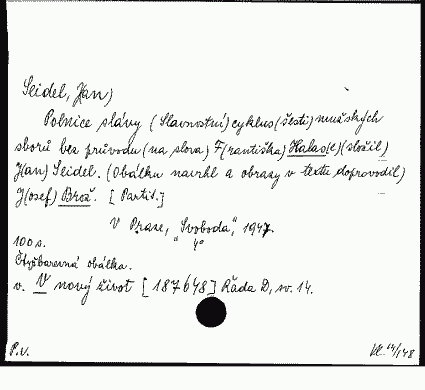 Seidel, J(an)
Polnice slávy (Slavnostní) cyklus (šesti) mužských
sborů bez průvodu (na slova) F(rantiška) Halas(e) (složil)
J(an) Seidel. (Obálku navrhl a obrazy v textu doprovodil)
J(osef) Brož. [Partit.]
V Praze, "Svoboda", 1947.
100 s. 4°
Čtyřbarevná obálka.
v. V nový život [187648] Řada D, sv. 14.
P.V.